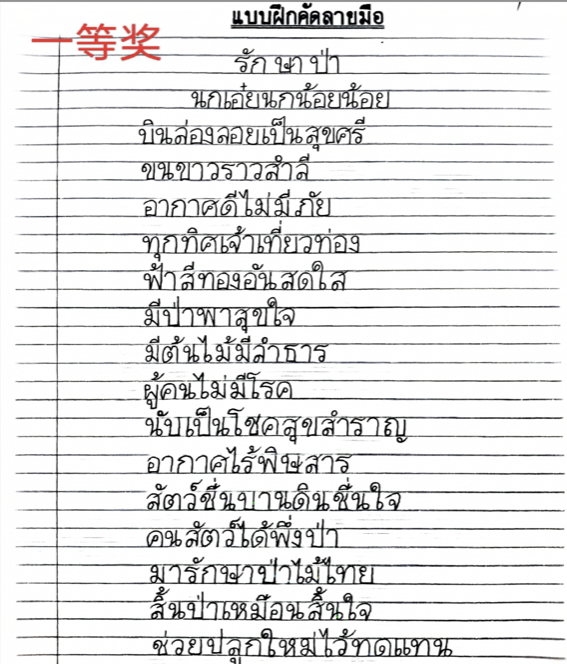 แบบฝึกคัดลายมือ
一等奖
รักษาป่า
นกเอ๋ยนกน้อยน้อย
บินล่องลอยเป็นสุขศรี
ขนขาวราวสำลี
อากาศดีไม่มีภัย
ทุกทิศเจ้าเที่ยวท่อง
ฟ้าสีทองอันสดใส
มีป่าพาสุขใจ
มีต้นไม้มีลำธาร
ผู้คนไม่มีโรค
นับเป็นโชคสุขสำราญ
อากาศไร้พิษสาร
สัตว์ชื่นบานดินชื่นใจ
คนสัตว์ได้พึ่งป่า
มารักษาป่าไม้ไทย
สิ้นป่าเหมือนสิ้นใจ
ช่วยปลูกใหม่ไว้ทดแทน